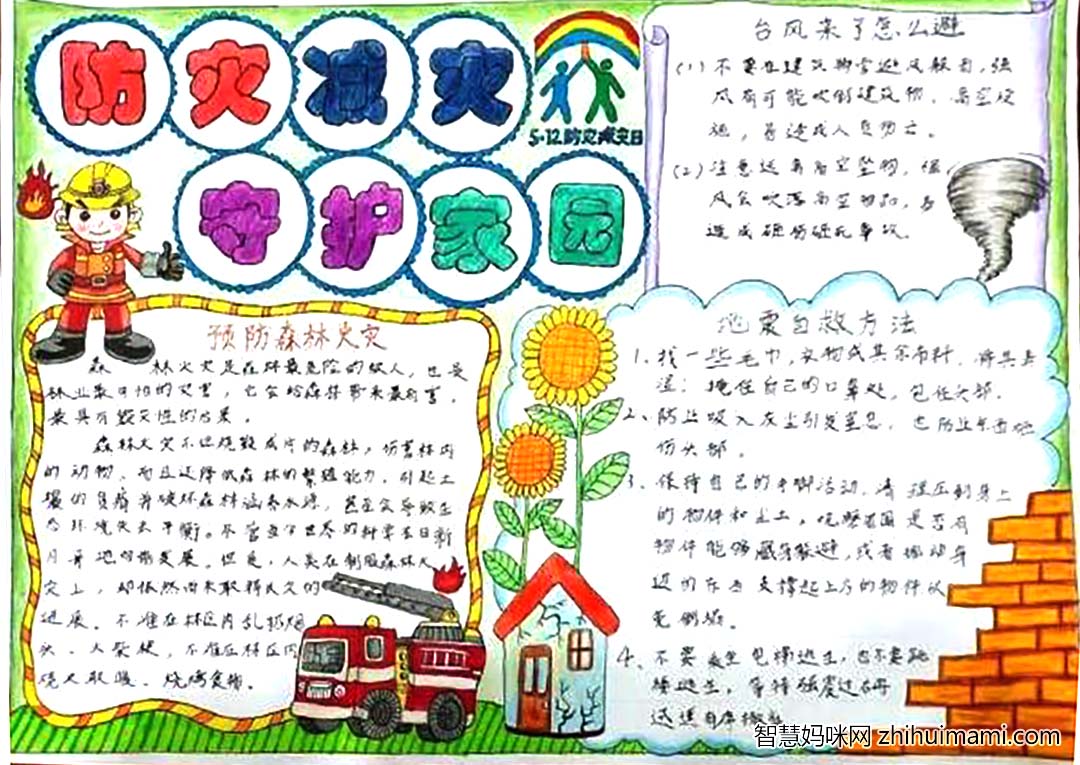 防灾减灾
5·12防灾减灾日
守护家园
台风来了怎么避
(1) 不要在建筑物旁避风躲雨,强
风有可能吹倒建筑物、高空设
施,易造成人员伤亡。
(2) 注意远离高空坠物,强
风会吹落高空物品,易
造成砸伤砸死事故。
预防森林火灾
森 林火灾是森林最危险的敌人,也是
林业最可怕的灾害,它会给森林带来最有害,
最具有毁灭性的后果。
森林火灾不但烧毁成片的森林,伤害林内
的动物,而且还降低森林的繁殖能力,引起土
壤的贫瘠并破坏森林涵养水源,甚至会导致生
态环境失去平衡。尽管当今世界的科学在日新
月异地向前发展。但是,人类在制服森林火
灾上,却依然尚未取得长久的
进展。不准在林区内乱扔烟
头、火柴梗,不准在林区内
烧火取暖、烧烤食物。
地震自救方法
1、找一些毛巾,衣物或其余布料,将其弄
湿;掩住自己的口鼻处,包住头部。
2、防止吸入灰尘引发窒息,也防止东西砸
伤头部。
3、保持自己的手脚活动,清理压到身上
的物件和尘土,观察范围是否有
物件能够藏身躲避,或者挪动身
边的东西支撑起上方的物件以
免倒塌。
4、不要乘坐电梯逃生,也不要跳
楼逃生,等待强震过去再
迅速有序撤离
智慧妈咪网 zhihuimami.com